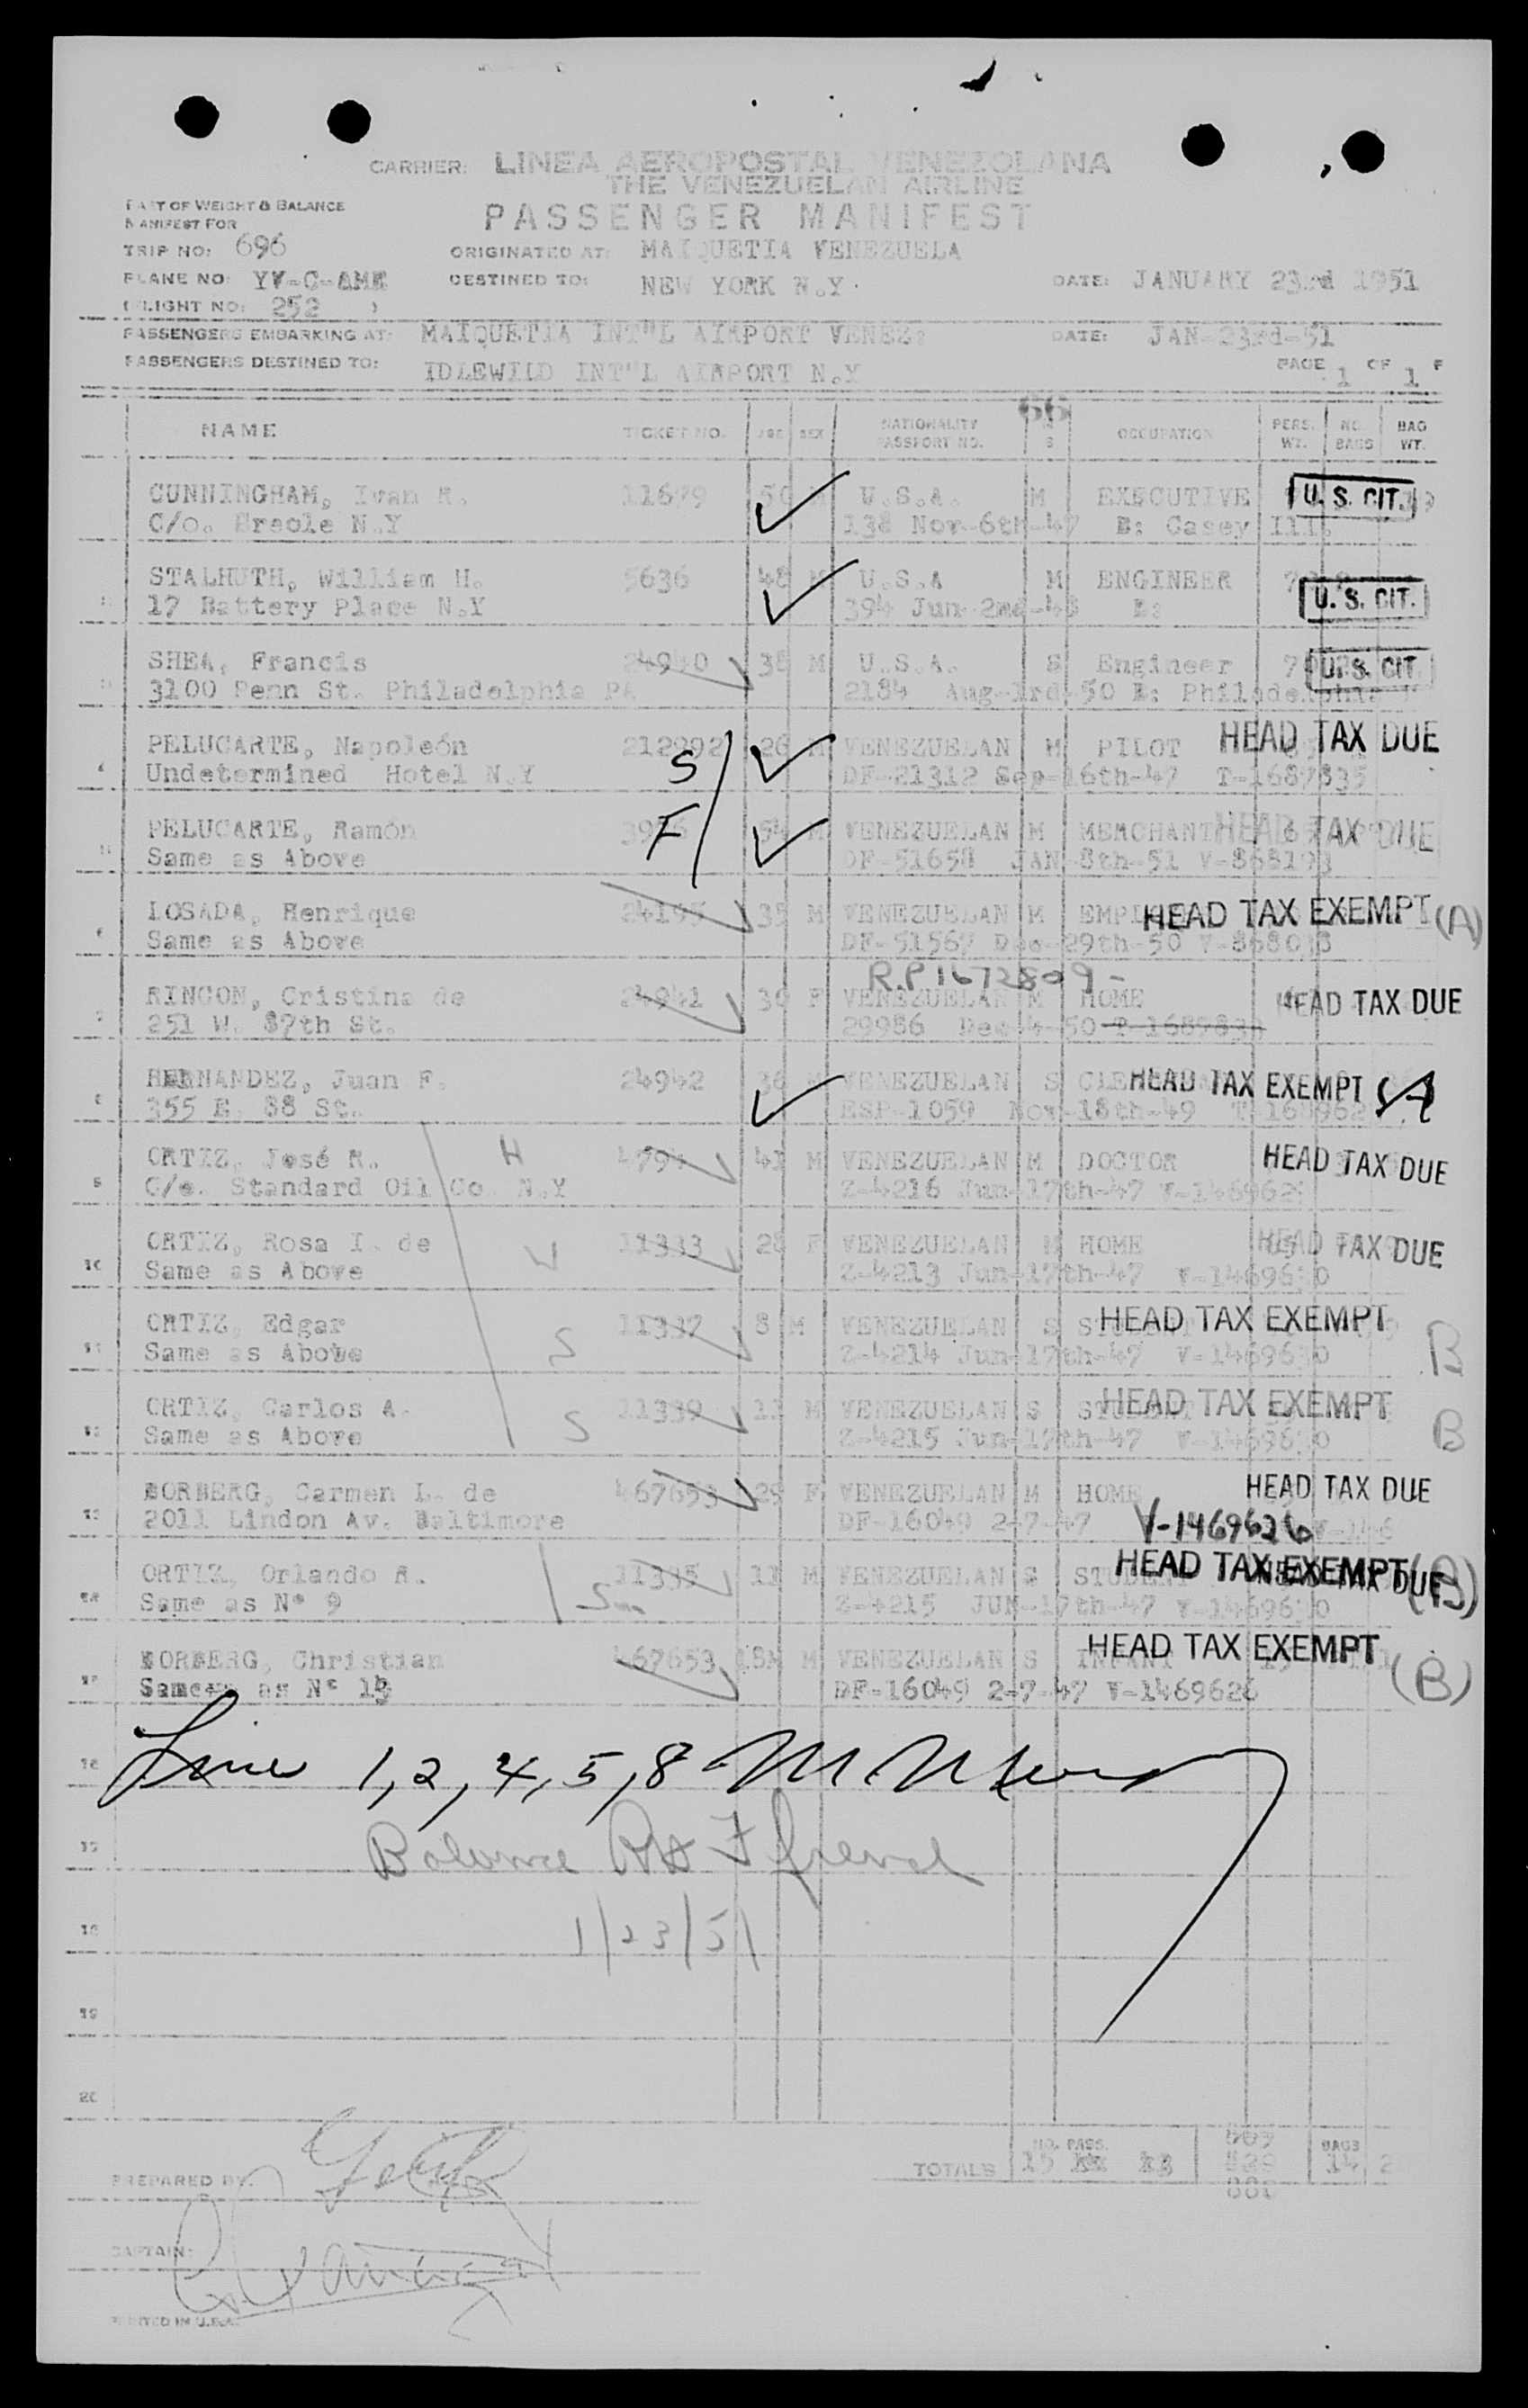 CARRIER: LINEA AEROPOSTAL VENEZOLANA
THE VENEZUELAN AIRLINE
PART OF WEIGHT & BALANCE
MANIFEST FOR
PASSENGER MANIFEST
TRIP NO: 696 ORIGINATED AT: MAIQUETIA VENEZUELA
PLANE NO: YV-C-AME DESTINED TO: NEW YORK N.Y. DATE: JANUARY 23rd 1951
(FLIGHT NO: 252 )
PASSENGERS EMBARKING AT: MAIQUETIA INT"L AIRPORT VENEZ: DATE: JAN-23rd-51
PASSENGERS DESTINED TO: IDLEWILD INT"L AIRPORT N.Y PAGE 1 OF 1
66
NAME TICKET NO. AGE SEX NATIONALITY PASSPORT NO. M S OCCUPATION PERS. WT. NO. BAGS BAG WT.
CUNNINGHAM, Ivan R. 11679 50 M U.S.A. M EXECUTIVE U. S. CIT.
C/o. Creole N.Y 138 Nov-6th-47 B: Casey Ill.
STALHUTH, William H. 5636 48 M U.S.A M ENGINEER U. S. CIT.
17 Battery Place N.Y 394 Jun-2nd-48 B:
SHEA, Francis 24940 38 M U.S.A. S Engineer U. S. CIT.
3100 Penn St. Philadelphia PA 2184 Aug-3rd-50 B: Philadelphia
PELUCARTE, Napoleón 212992 26 M VENEZUELAN M PILOT HEAD TAX DUE
4 Undetermined Hotel N.Y S DF-21312 Sep-16th-47 T-1687835
PELUCARTE, Ramón F 54 M VENEZUELAN M MERCHANT HEAD TAX DUE
Same as Above DF-51658 JAN-8th-51 V-868193
LOSADA, Henrique 24195 35 M VENEZUELAN M HEAD TAX EXEMPT (A)
Same as Above DF-51567 Dec-29th-50 V-868038
R.P 1672809-
RINCON, Cristina de 24941 30 F VENEZUELAN M HOME HEAD TAX DUE
251 W. 87th St. 29986 Dec-4-50 T-1687834
HERNANDEZ, Juan F. 24942 36 M VENEZUELAN S HEAD TAX EXEMPT A
355 E. 88 St. ESP-1059 Nov-18th-49
ORTIZ, José R. H 41 M VENEZUELAN M DOCTOR HEAD TAX DUE
C/o. Standard Oil Co N.Y Z-4216 Jun-17th-47
ORTIZ, Rosa I. de 11333 28 F VENEZUELAN M HOME HEAD TAX DUE
10 Same as Above Z-4213 Jun-17th-47 V-1469630
ORTIZ, Edgar S 11337 8 M VENEZUELAN S STUDENT HEAD TAX EXEMPT B
11 Same as Above Z-4214 Jun-17th-47 V-1469630
ORTIZ, Carlos A. S 11339 11 M VENEZUELAN S STUDENT HEAD TAX EXEMPT B
12 Same as Above Z-4215 Jun-17th-47 V-1469630
BORBERG, Carmen L. de 467653 29 F VENEZUELAN M HOME HEAD TAX DUE
13 2011 Lindon Av. Baltimore DF-16049 2-7-47 V-1469626
ORTIZ, Orlando R. 11335 11 M VENEZUELAN S STUDENT HEAD TAX EXEMPT (B)
Same as N° 9 Z-4215 JUN-17th-47 V-1469630
BORBERG, Christian 467653 18M M VENEZUELAN S INFANT HEAD TAX EXEMPT (B)
Same as N° 13 DF-16049 2-7-47 V-1469626
16 Lines 1, 2, 4, 5, 8
17 Balance
18 1/23/51
19
20
TOTALS NO. PASS. 15 BAGS 14
PREPARED BY:
CAPTAIN:
PRINTED IN U.S.A.